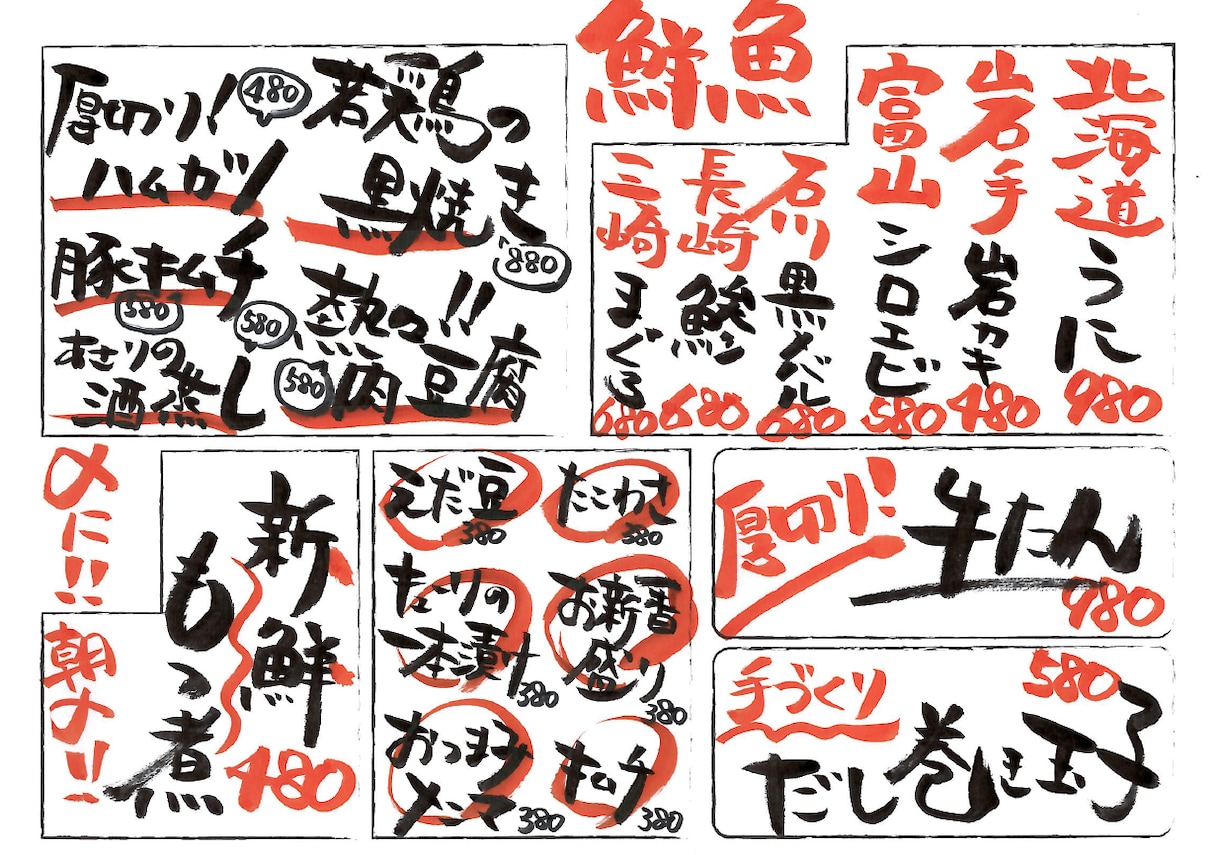 鮮魚
北海道 うに 980
岩手 岩カキ 480
富山 シロエビ 580
石川 黒メバル 680
長崎 鯵 680
三崎 まぐろ 680
若鶏の
黒焼き
880
厚切り!
ハムカツ
480
熱々!!
肉豆腐
580
豚キムチ
580
あさりの
酒蒸し
580
〆に!!
朝〆!!
新鮮
もつ煮
480
たこわさ
380
えだ豆
380
お新香
盛り
380
きゅーりの
一本漬け
380
キムチ
380
おつまみ
メンマ
380
厚切り!
牛たん
980
手づくり
だし巻き玉子
580